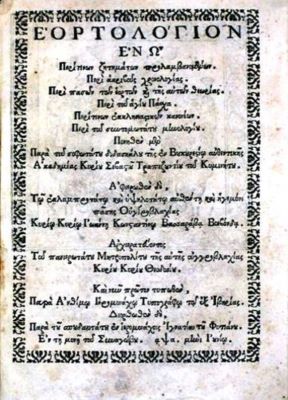 ΕΟΡΤΟΛΟΓΙΟΝ
ΕΝ Ω
Περί τινων ζητημάτων προλαμβανομένων.
Περὶ ἀκριβοῦς χρονολογίας.
Περὶ πασῶν τῶν ἑορτῶν καὶ τῆς αὐτῶν θεωρίας.
Περὶ τοῦ ἁγίου Πάσχα.
Περί τινων ἐκκλησιαστικῶν κανόνων.
Περὶ τοῦ μηνολογίου.
Πονηθὲν μὲν
Παρὰ τοῦ σοφωτάτου διδασκάλου τῆς ἐν Βουκουρεστίῳ αὐθεντικῆς
Ἀκαδημίας Κυρίου Σεβαστοῦ Τραπεζουντίου τοῦ Κυμινήτου.
Ἀφιερωθὲν δὲ,
Τῷ ἐκλαμπροτάτῳ καὶ ὑψηλοτάτῳ αὐθέντῃ καὶ ἡγεμόνι
πάσης Οὑγγροβλαχίας
Κυρίῳ Κυρίῳ Ἰωάννῃ Κωνσταντίνῳ Βασσαράβᾳ Βοεβόνδᾳ.
Ἀρχιερατεύοντος
Τοῦ πανιερωτάτου Μητροπολίτου τῆς αὐτῆς οὑγγροβλαχίας
Κυρίου Κυρίου Θεοδοσίου.
Καὶ νῦν πρῶτον τυπωθὲν,
Παρὰ Ἀνθίμου Ἱερομονάχου Τυπογράφου τοῦ ἐξ Ἰβηρίας.
Διορθωθὲν δὲ,
Παρὰ τοῦ ἐν ἱερομονάχοις Ἰγνατίου τοῦ Φυτιάνου.
Ἐν τῇ μονῇ τοῦ Συναγώβου. αψα. μηνὶ Ἰουνίῳ.